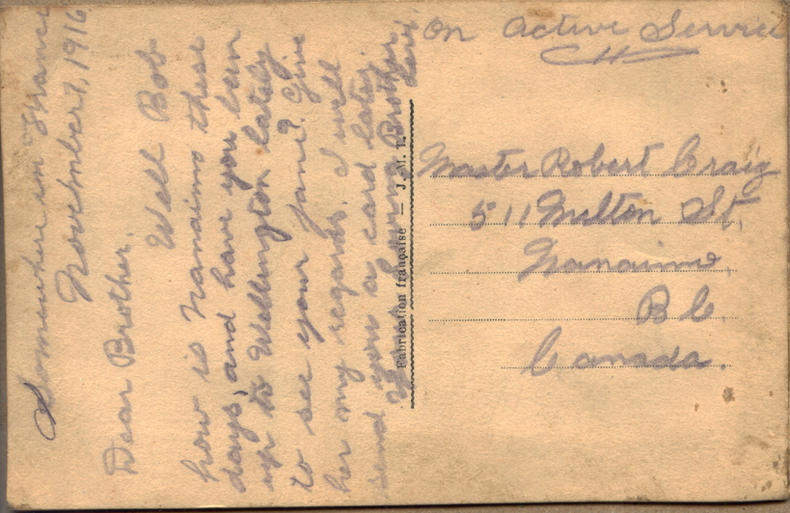 Somewhere in France
November 7, 1916
Dear Brother
Well Bob
how is Nanaimo these
days, and have you been
up to Wellington lately
to see your Jane? Give
her my regards. I will
send you a card later.
loving Brother
Fabrication française — J. M. T.
On Active Service
Master Robert Craig
511 Milton St.
Nanaimo
B C
Canada.